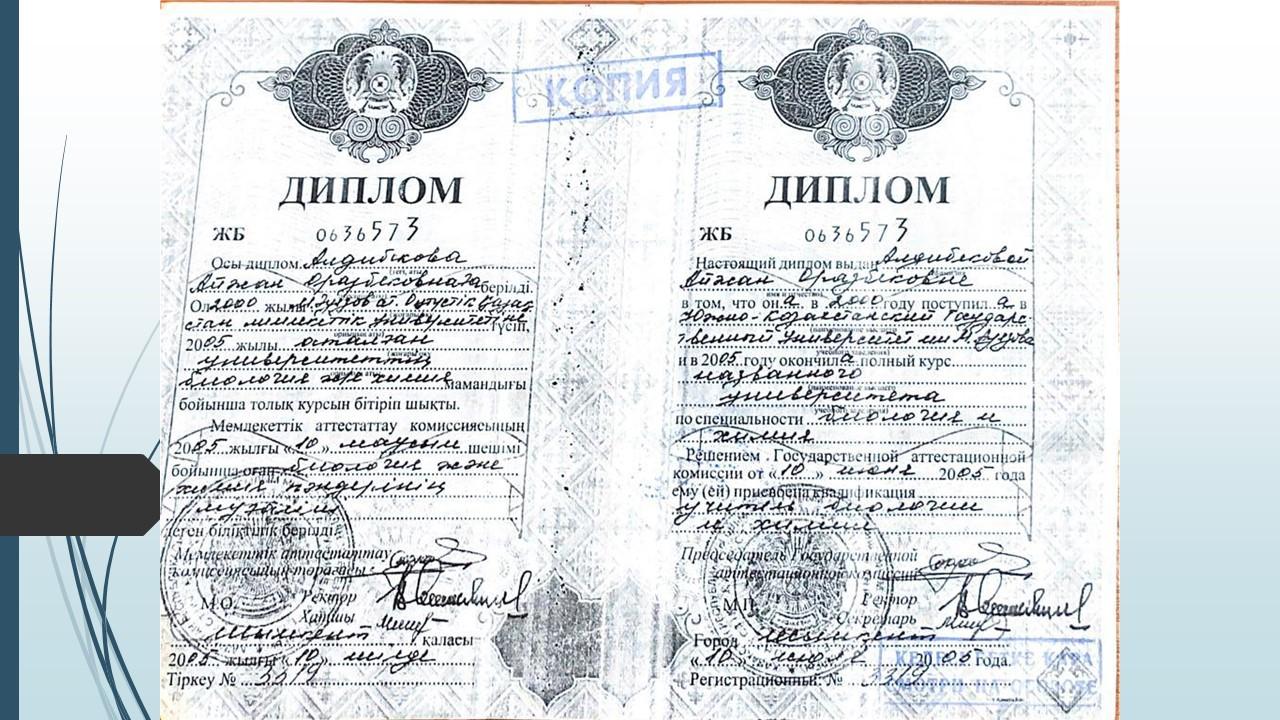 КОПИЯ
ДИПЛОМ
ЖБ 0636573
Осы диплом Алдибекова
Айжан Оразбековнаға берілді.
Ол 2000 жылы М.Әуезов ат. Оңтүстік Қазақ
стан мемлекеттік университетіне түсіп,
2005 жылы аталған
университеттің
биология және химия мамандығы
бойынша толық курсын бітіріп шықты.
Мемлекеттік аттестаттау комиссиясының
2005 жылғы «10» маусым шешімі
бойынша оған биология және
химия пәндерінің
мұғалімі
деген біліктілік берілді.
Мемлекеттік аттестаттау
комиссиясының төрағасы
М.О. Ректор
Хатшы
Шымкент қаласы
2005 жылғы «10» шілде
Тіркеу № 3319
ДИПЛОМ
ЖБ 0636573
Настоящий диплом выдан Алдибековой
Айжан Оразбековне
в том, что она в 2000 году поступила в
Южно-Казахстанский Государс
твенный Университет им М.Ауэзова
и в 2005 году окончила полный курс
названного
университета
по специальности биология и
химия
Решением Государственной аттестационной
комиссии от «10» июня 2005 года
ему (ей) присвоена квалификация
учитель биологии
и химии
Председатель Государственной
аттестационной комиссии
М.П. Ректор
Секретарь
Город Шымкент
«10» июля 2005 года.
Регистрационный № 3319